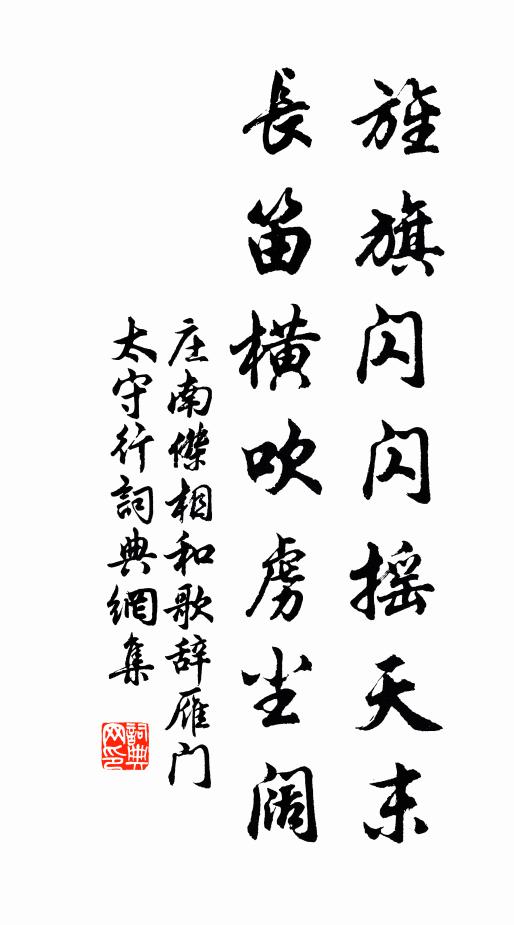 旌旗闪闪摇天末
長笛橫吹虏尘阔
庄南傑相和歌辞雁门
太守行詞典網集
詞典网印